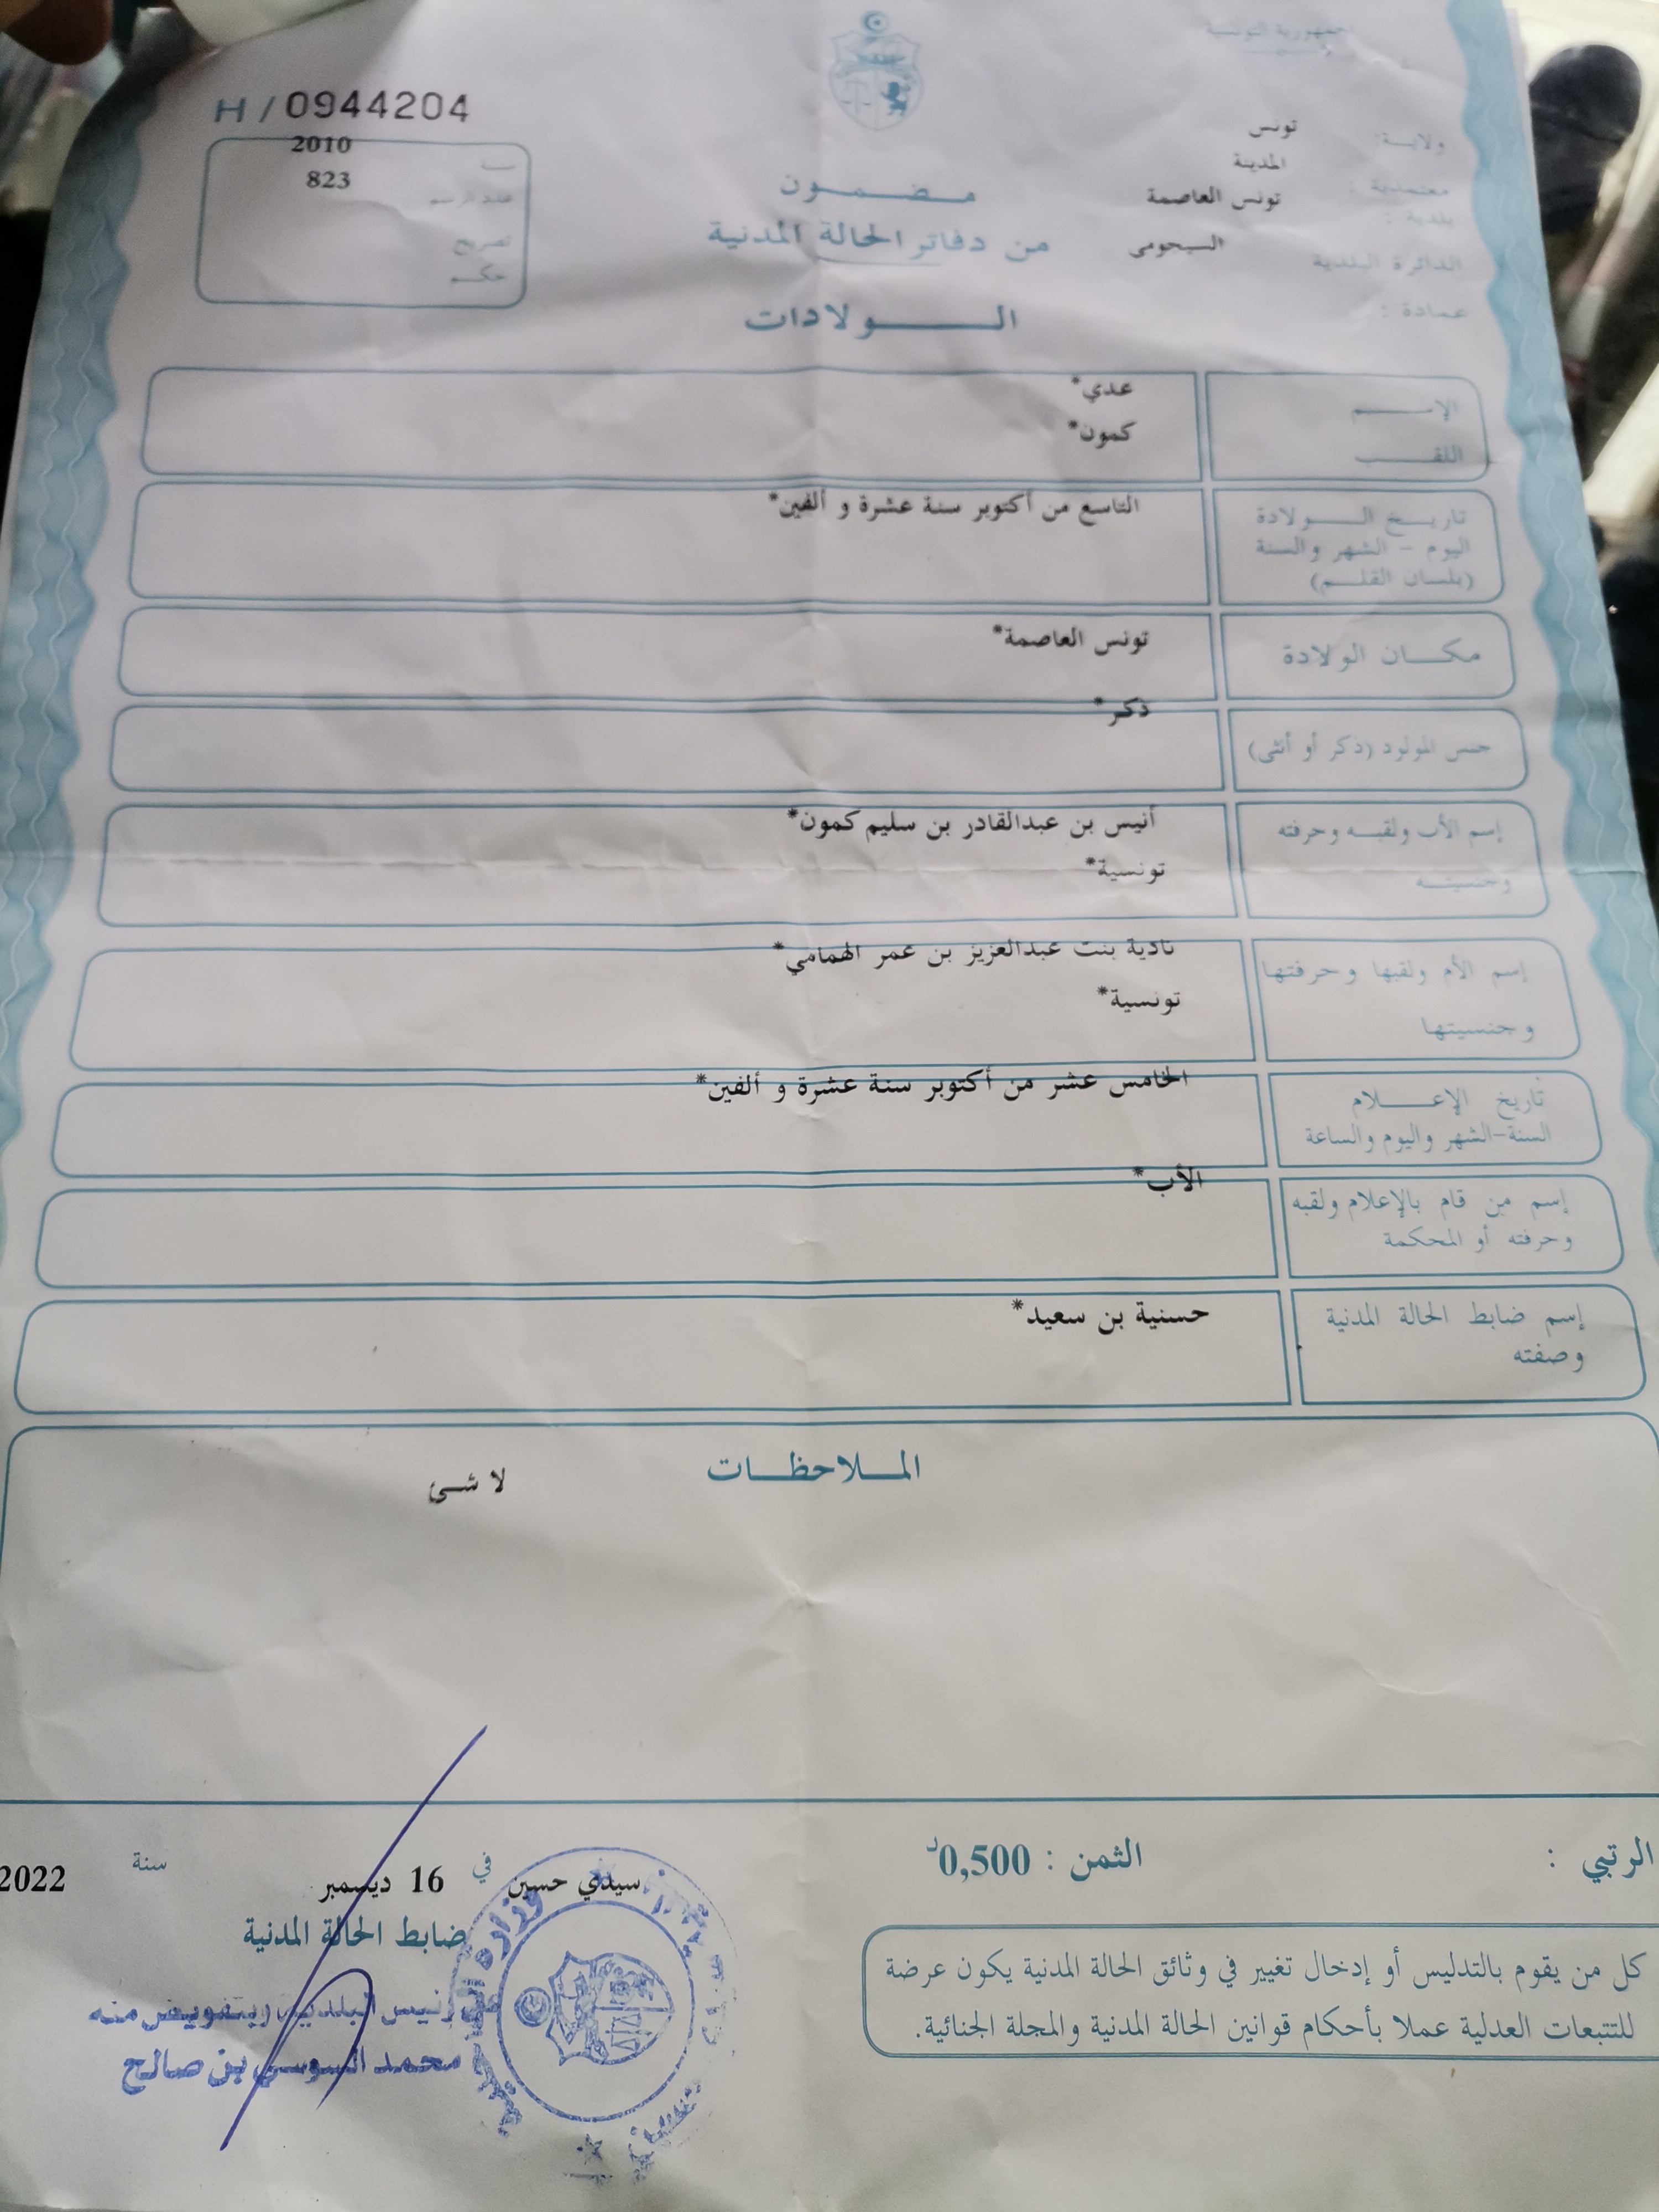 الجمهورية التونسية
H / 0944204
ولاية: تونس
معتمدية : المدينة
بلدية : تونس العاصمة
الدائرة البلدية السيجومى
عمادة :
2010
عدد الرسم 823
تصريح
حكم
مضمون
من دفاتر الحالة المدنية
الولادات
الإسم عدي*
اللقب كمون*
تاريخ الولادة التاسع من أكتوبر سنة عشرة و ألفين*
اليوم - الشهر والسنة
(بلسان القلم)
مكان الولادة تونس العاصمة*
جنس المولود (ذكر أو أنثى) ذكر*
إسم الأب ولقبه وحرفته أنيس بن عبدالقادر بن سليم كمون*
وجنسيته تونسية*
إسم الأم ولقبها وحرفتها نادية بنت عبدالعزيز بن عمر الهمامي*
وجنسيتها تونسية*
تاريخ الإعلام الخامس عشر من أكتوبر سنة عشرة و ألفين*
السنة-الشهر واليوم والساعة
إسم من قام بالإعلام ولقبه الأب*
وحرفته أو المحكمة
إسم ضابط الحالة المدنية حسنية بن سعيد*
وصفته
الملاحظات
لا شىء
الرتبي : الثمن : 0,500د
سيدي حسين في 16 ديسمبر سنة 2022
ضابط الحالة المدنية
عن رئيس البلدية وبتفويض منه
محمد السوسي بن صالح
وزارة
كل من يقوم بالتدليس أو إدخال تغيير في وثائق الحالة المدنية يكون عرضة
للتتبعات العدلية عملا بأحكام قوانين الحالة المدنية والمجلة الجنائية.